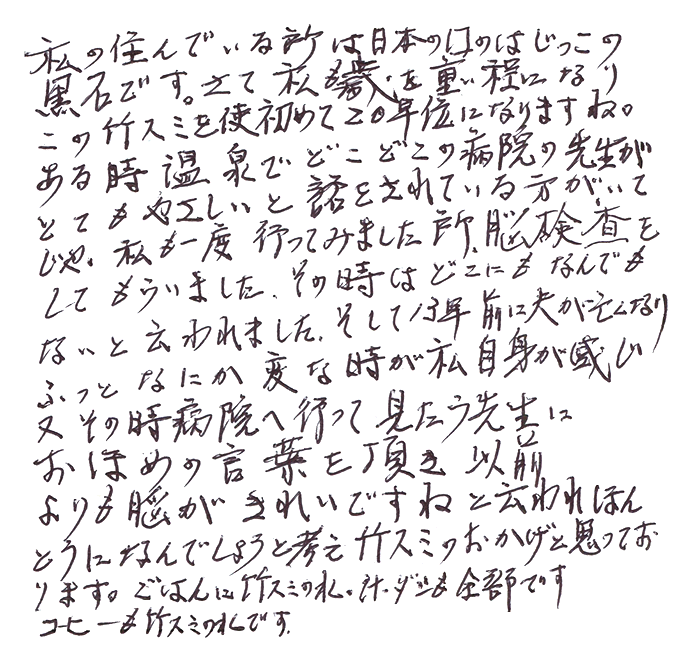 私の住んでいる所は日本の口のはじっこの
黒石です。さて私も歳を重い程になり
この竹スミを使初めて20年位になりますね。
ある時温泉でどこどこの病院の先生が
とてもやさしいと話をされている方がいて
じゃ、私も一度行ってみました所、脳検査を
してもらいました、その時はどこにもなんでも
ないと云われました、そして13年前に夫が亡くなり
ふっとなにか変な時が私自身が感じ
又その時病院へ行って見たら先生に
おほめの言葉を頂き以前
よりも脳がきれいですねと云われほん
とうになんでしょうと考え竹スミのおかげと思ってお
ります。ごはんに竹スミの水。汁・ダシも全部です
コーヒーも竹スミの水です。